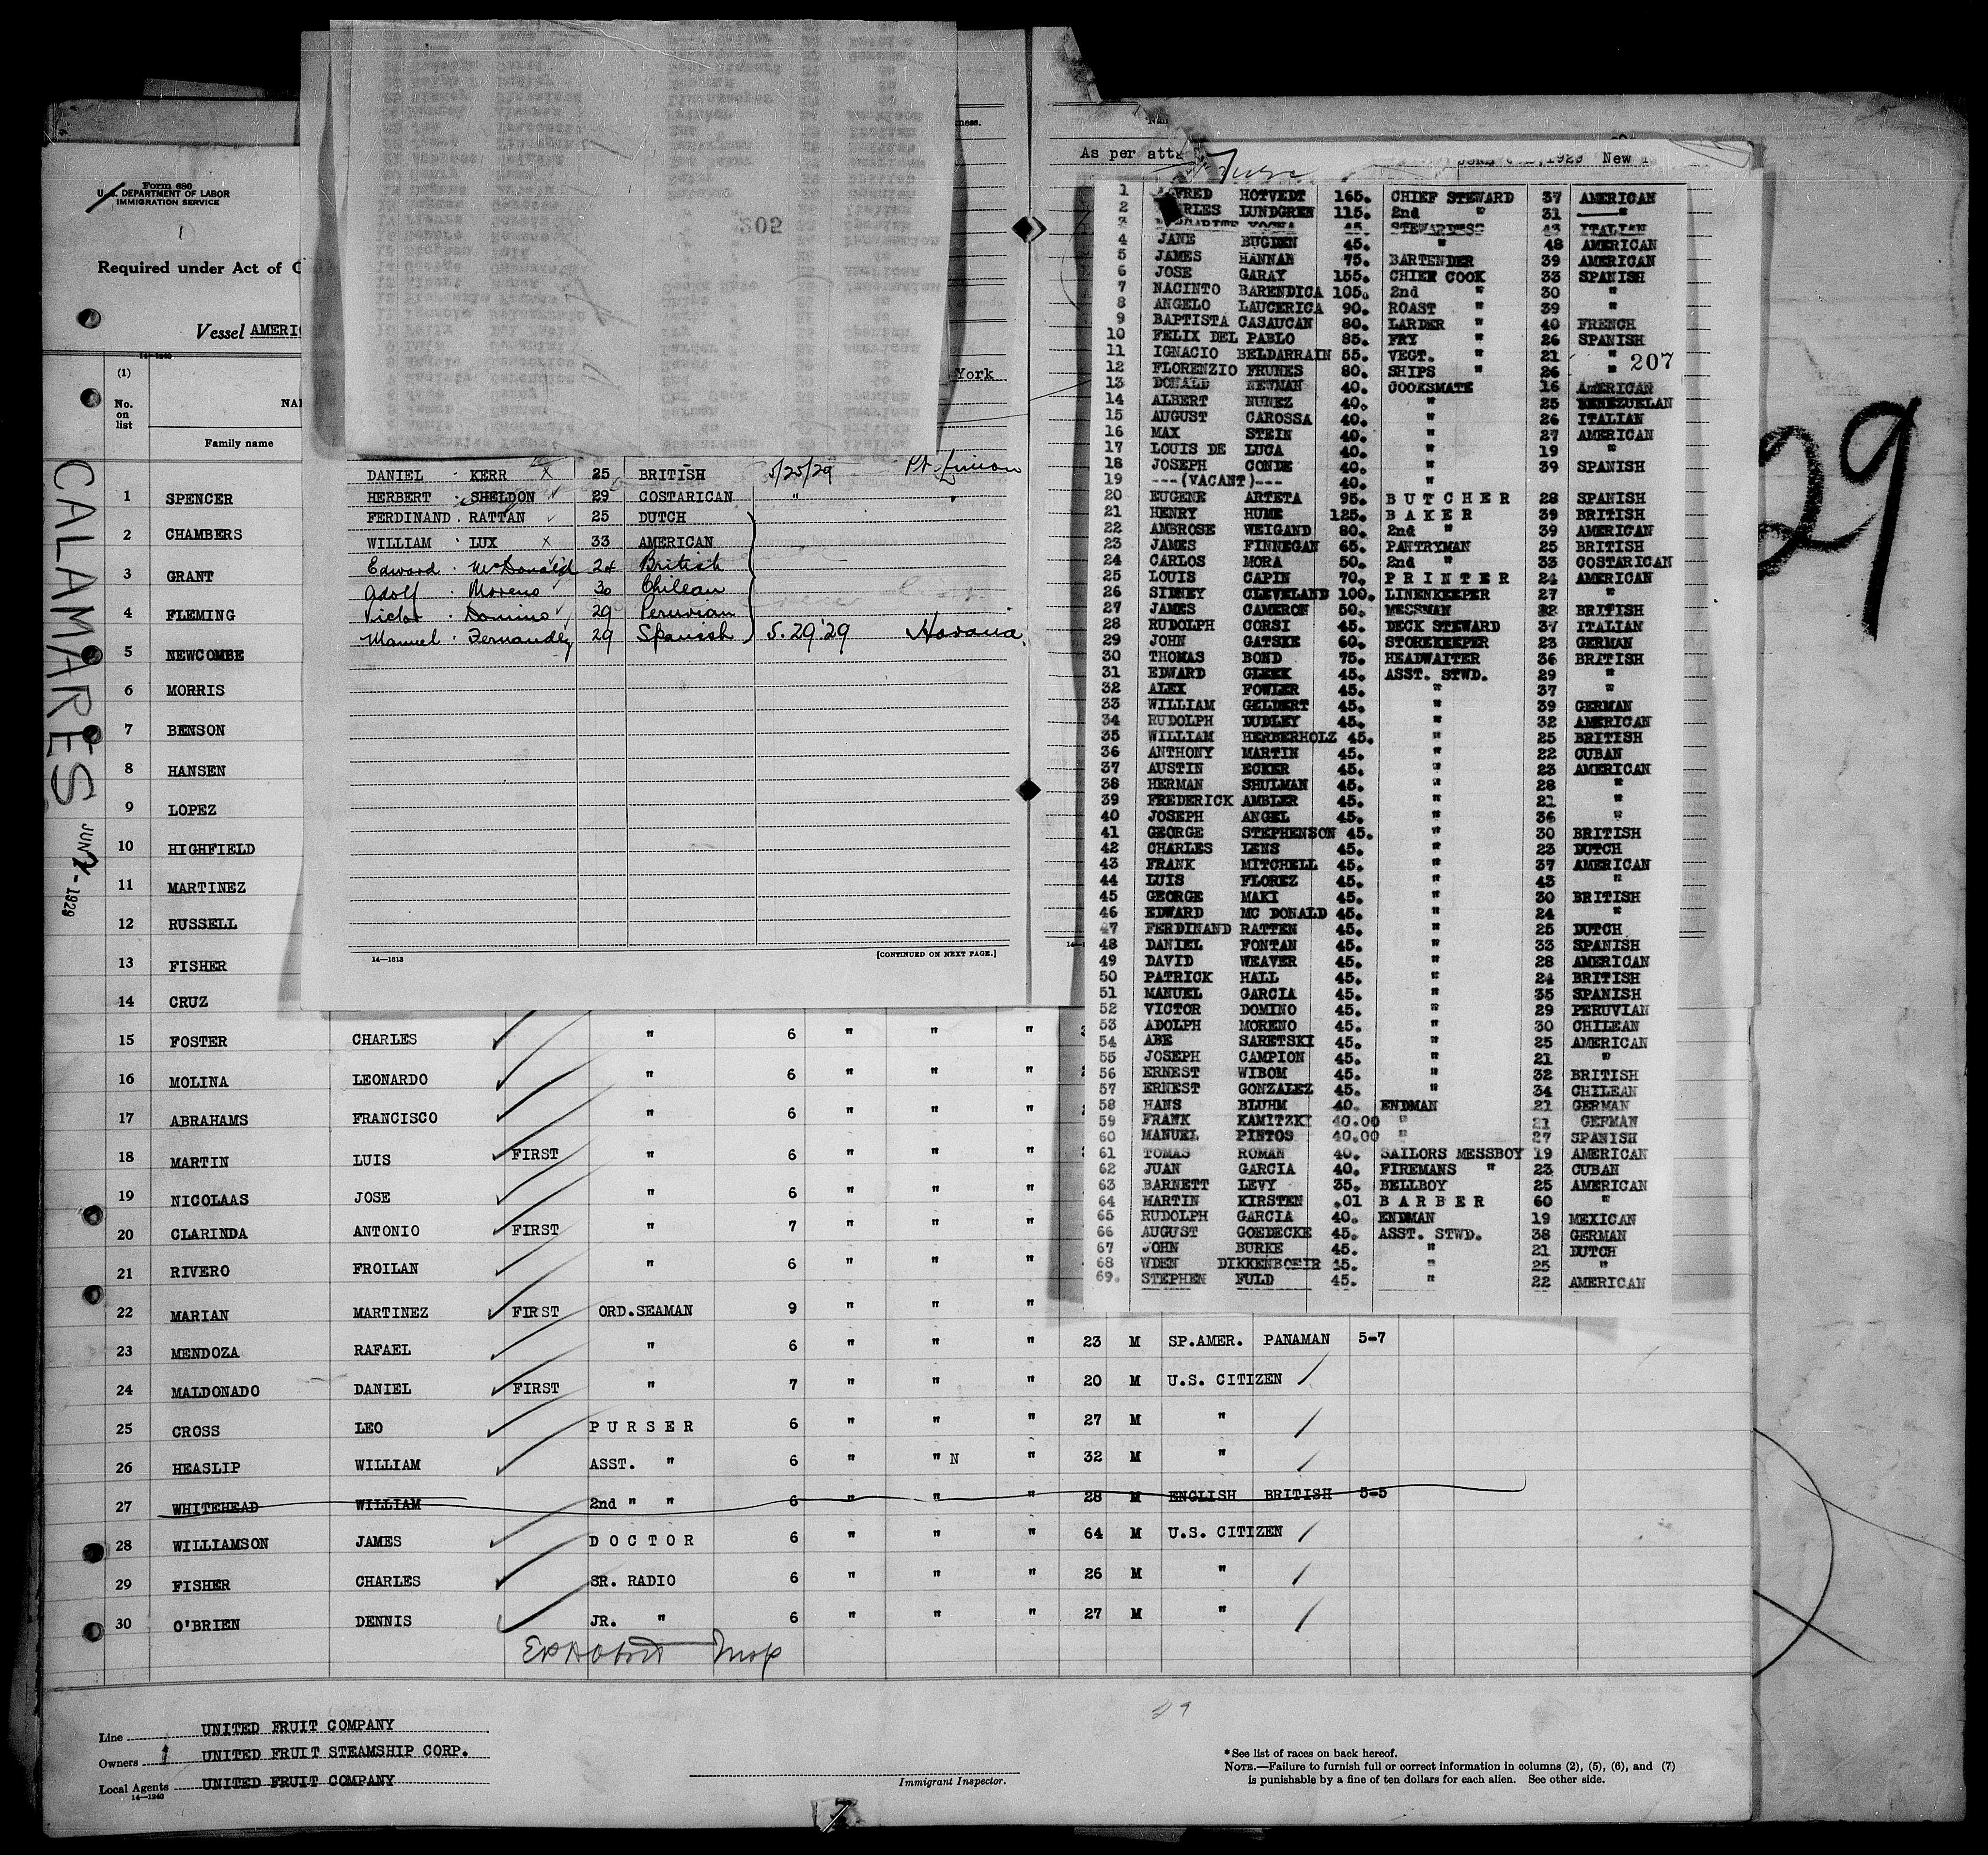 Form 680
U. S. DEPARTMENT OF LABOR
IMMIGRATION SERVICE
1
Required under Act of
Vessel AMERI
14-1240
(1)
No. on list
Family name
CALAMARES
JUN 2 - 1929
1 SPENCER
2 CHAMBERS
3 GRANT
4 FLEMING
5 NEWCOMBE
6 MORRIS
7 BENSON
8 HANSEN
9 LOPEZ
10 HIGHFIELD
11 MARTINEZ
12 RUSSELL
13 FISHER
14 CRUZ
15 FOSTER CHARLES " 6 " " "
16 MOLINA LEONARDO " 6 " " "
17 ABRAHAMS FRANCISCO " 6 " " "
18 MARTIN LUIS FIRST " 6 " " "
19 NICOLAAS JOSE " 6 " " "
20 CLARINDA ANTONIO FIRST " 7 " " "
21 RIVERO FROILAN " 6 " " "
22 MARIAN MARTINEZ FIRST ORD.SEAMAN 9 " " "
23 MENDOZA RAFAEL " 6 " " " 23 M SP.AMER. PANAMAN 5-7
24 MALDONADO DANIEL FIRST " 7 " " " 20 M U.S. CITIZEN
25 CROSS LEO PURSER 6 " " " 27 M "
26 HEASLIP WILLIAM ASST. " 6 " " N " 32 M "
27 WHITEHEAD WILLIAM 2nd " " 6 " " " 28 M ENGLISH BRITISH 5-5
28 WILLIAMSON JAMES DOCTOR 6 " " " 64 M U.S. CITIZEN
29 FISHER CHARLES SR. RADIO 6 " " " 26 M "
30 O'BRIEN DENNIS JR. " 6 " " " 27 M "
Line UNITED FRUIT COMPANY
Owners UNITED FRUIT STEAMSHIP CORP.
Local Agents UNITED FRUIT COMPANY
14-1240
Immigrant Inspector.
* See list of races on back hereof.
NOTE.—Failure to furnish full or correct information in columns (2), (5), (6), and (7)
is punishable by a fine of ten dollars for each alien. See other side.
29
205
York
DANIEL KERR X 25 BRITISH 5/25/29 Pt. Limon
HERBERT SHELDON 29 COSTARICAN " "
FERDINAND RATTAN 25 DUTCH
WILLIAM LUX X 33 AMERICAN
Edward McDonald 24 British
Adolf Moreno 30 Chilean
Victor Domino 29 Peruvian
Manuel Fernandez 29 Spanish 5.29'29 Havana
14—1613
[CONTINUED ON NEXT PAGE.]
As per atta
1929 New
207
1 FRED HOTVEDT 165. CHIEF STEWARD 37 AMERICAN
2 RLES LUNDGREN 115. 2nd " 31 "
3 45. STEWARDESS 43 ITALIAN
4 JANE BUGDEN 45. " 48 AMERICAN
5 JAMES HANNAN 75. BARTENDER 39 AMERICAN
6 JOSE GARAY 155. CHIEF COOK 33 SPANISH
7 NACINTO BARENDICA 105. 2nd " 30 "
8 ANGELO LAUCERICA 90. ROAST " 39 "
9 BAPTISTA CASAUCAN 80. LARDER " 40 FRENCH
10 FELIX DEL PABLO 85. FRY " 26 SPANISH
11 IGNACIO BELDARRAIN 55. VEGT. " 21 "
12 FLORENZIO FRUNES 80. SHIPS " 26 "
13 DONALD NEWMAN 40. COOKSMATE 16 AMERICAN
14 ALBERT NUNEZ 40. " 25 VENEZUELAN
15 AUGUST CAROSSA 40. " 26 ITALIAN
16 MAX STEIN 40. " 27 AMERICAN
17 LOUIS DE LUCA 40. " 19 "
18 JOSEPH CONDE 40. " 39 SPANISH
19 ---(VACANT)--- 40. "
20 EUGENE ARTETA 95. BUTCHER 28 SPANISH
21 HENRY HUME 125. BAKER 39 BRITISH
22 AMBROSE WEIGAND 80. 2nd " 39 AMERICAN
23 JAMES FINNEGAN 65. PANTRYMAN 25 BRITISH
24 CARLOS MORA 50. 2nd " 33 COSTARICAN
25 LOUIS CAPIN 70. PRINTER 24 AMERICAN
26 SIDNEY CLEVELAND 100. LINENKEEPER 27 "
27 JAMES CAMERON 50. MESSMAN 22 BRITISH
28 RUDOLPH CORSI 45. DECK STEWARD 37 ITALIAN
29 JOHN GATSKE 60. STOREKEEPER 23 GERMAN
30 THOMAS BOND 75. HEADWAITER 36 BRITISH
31 EDWARD GLEEK 45. ASST. STWD. 29 "
32 ALEX FOWLER 45. " 37 "
33 WILLIAM GELDERT 45. " 39 GERMAN
34 RUDOLPH DUDLEY 45. " 32 AMERICAN
35 WILLIAM HERBERHOLZ 45. " 25 BRITISH
36 ANTHONY MARTIN 45. " 22 CUBAN
37 AUSTIN ECKER 45. " 23 AMERICAN
38 HERMAN SHULMAN 45. " 28 "
39 FREDERICK AMBLER 45. " 21 "
40 JOSEPH ANGEL 45. " 36 "
41 GEORGE STEPHENSON 45. " 30 BRITISH
42 CHARLES LENS 45. " 23 DUTCH
43 FRANK MITCHELL 45. " 37 AMERICAN
44 LUIS FLOREZ 45. " 43 "
45 GEORGE MAKI 45. " 30 BRITISH
46 EDWARD MC DONALD 45. " 24 "
47 FERDINAND RATTEN 45. " 25 DUTCH
48 DANIEL FONTAN 45. " 33 SPANISH
49 DAVID WEAVER 45. " 28 AMERICAN
50 PATRICK HALL 45. " 24 BRITISH
51 MANUEL GARCIA 45. " 35 SPANISH
52 VICTOR DOMINO 45. " 29 PERUVIAN
53 ADOLPH MORENO 45. " 30 CHILEAN
54 ABE SARETSKI 45. " 25 AMERICAN
55 JOSEPH CAMPION 45. " 21 "
56 ERNEST WIBOM 45. " 32 BRITISH
57 ERNEST GONZALEZ 45. " 34 CHILEAN
58 HANS BLUHM 40. ENDMAN 21 GERMAN
59 FRANK KAMITZKI 40.00 " 21 GERMAN
60 MANUEL PINTOS 40.00 " 27 SPANISH
61 TOMAS ROMAN 40. SAILORS MESSBOY 19 AMERICAN
62 JUAN GARCIA 40. FIREMANS " 23 CUBAN
63 BARNETT LEVY 35. BELLBOY 25 AMERICAN
64 MARTIN KIRSTEN .01 BARBER 60 "
65 RUDOLPH GARCIA 40. ENDMAN 19 MEXICAN
66 AUGUST GOEDECKE 45. ASST. STWD. 38 GERMAN
67 JOHN BURKE 45. " 21 DUTCH
68 WDEN DIKKENBOEIR 45. " 25 "
69. STEPHEN FULD 45. " 22 AMERICAN
29